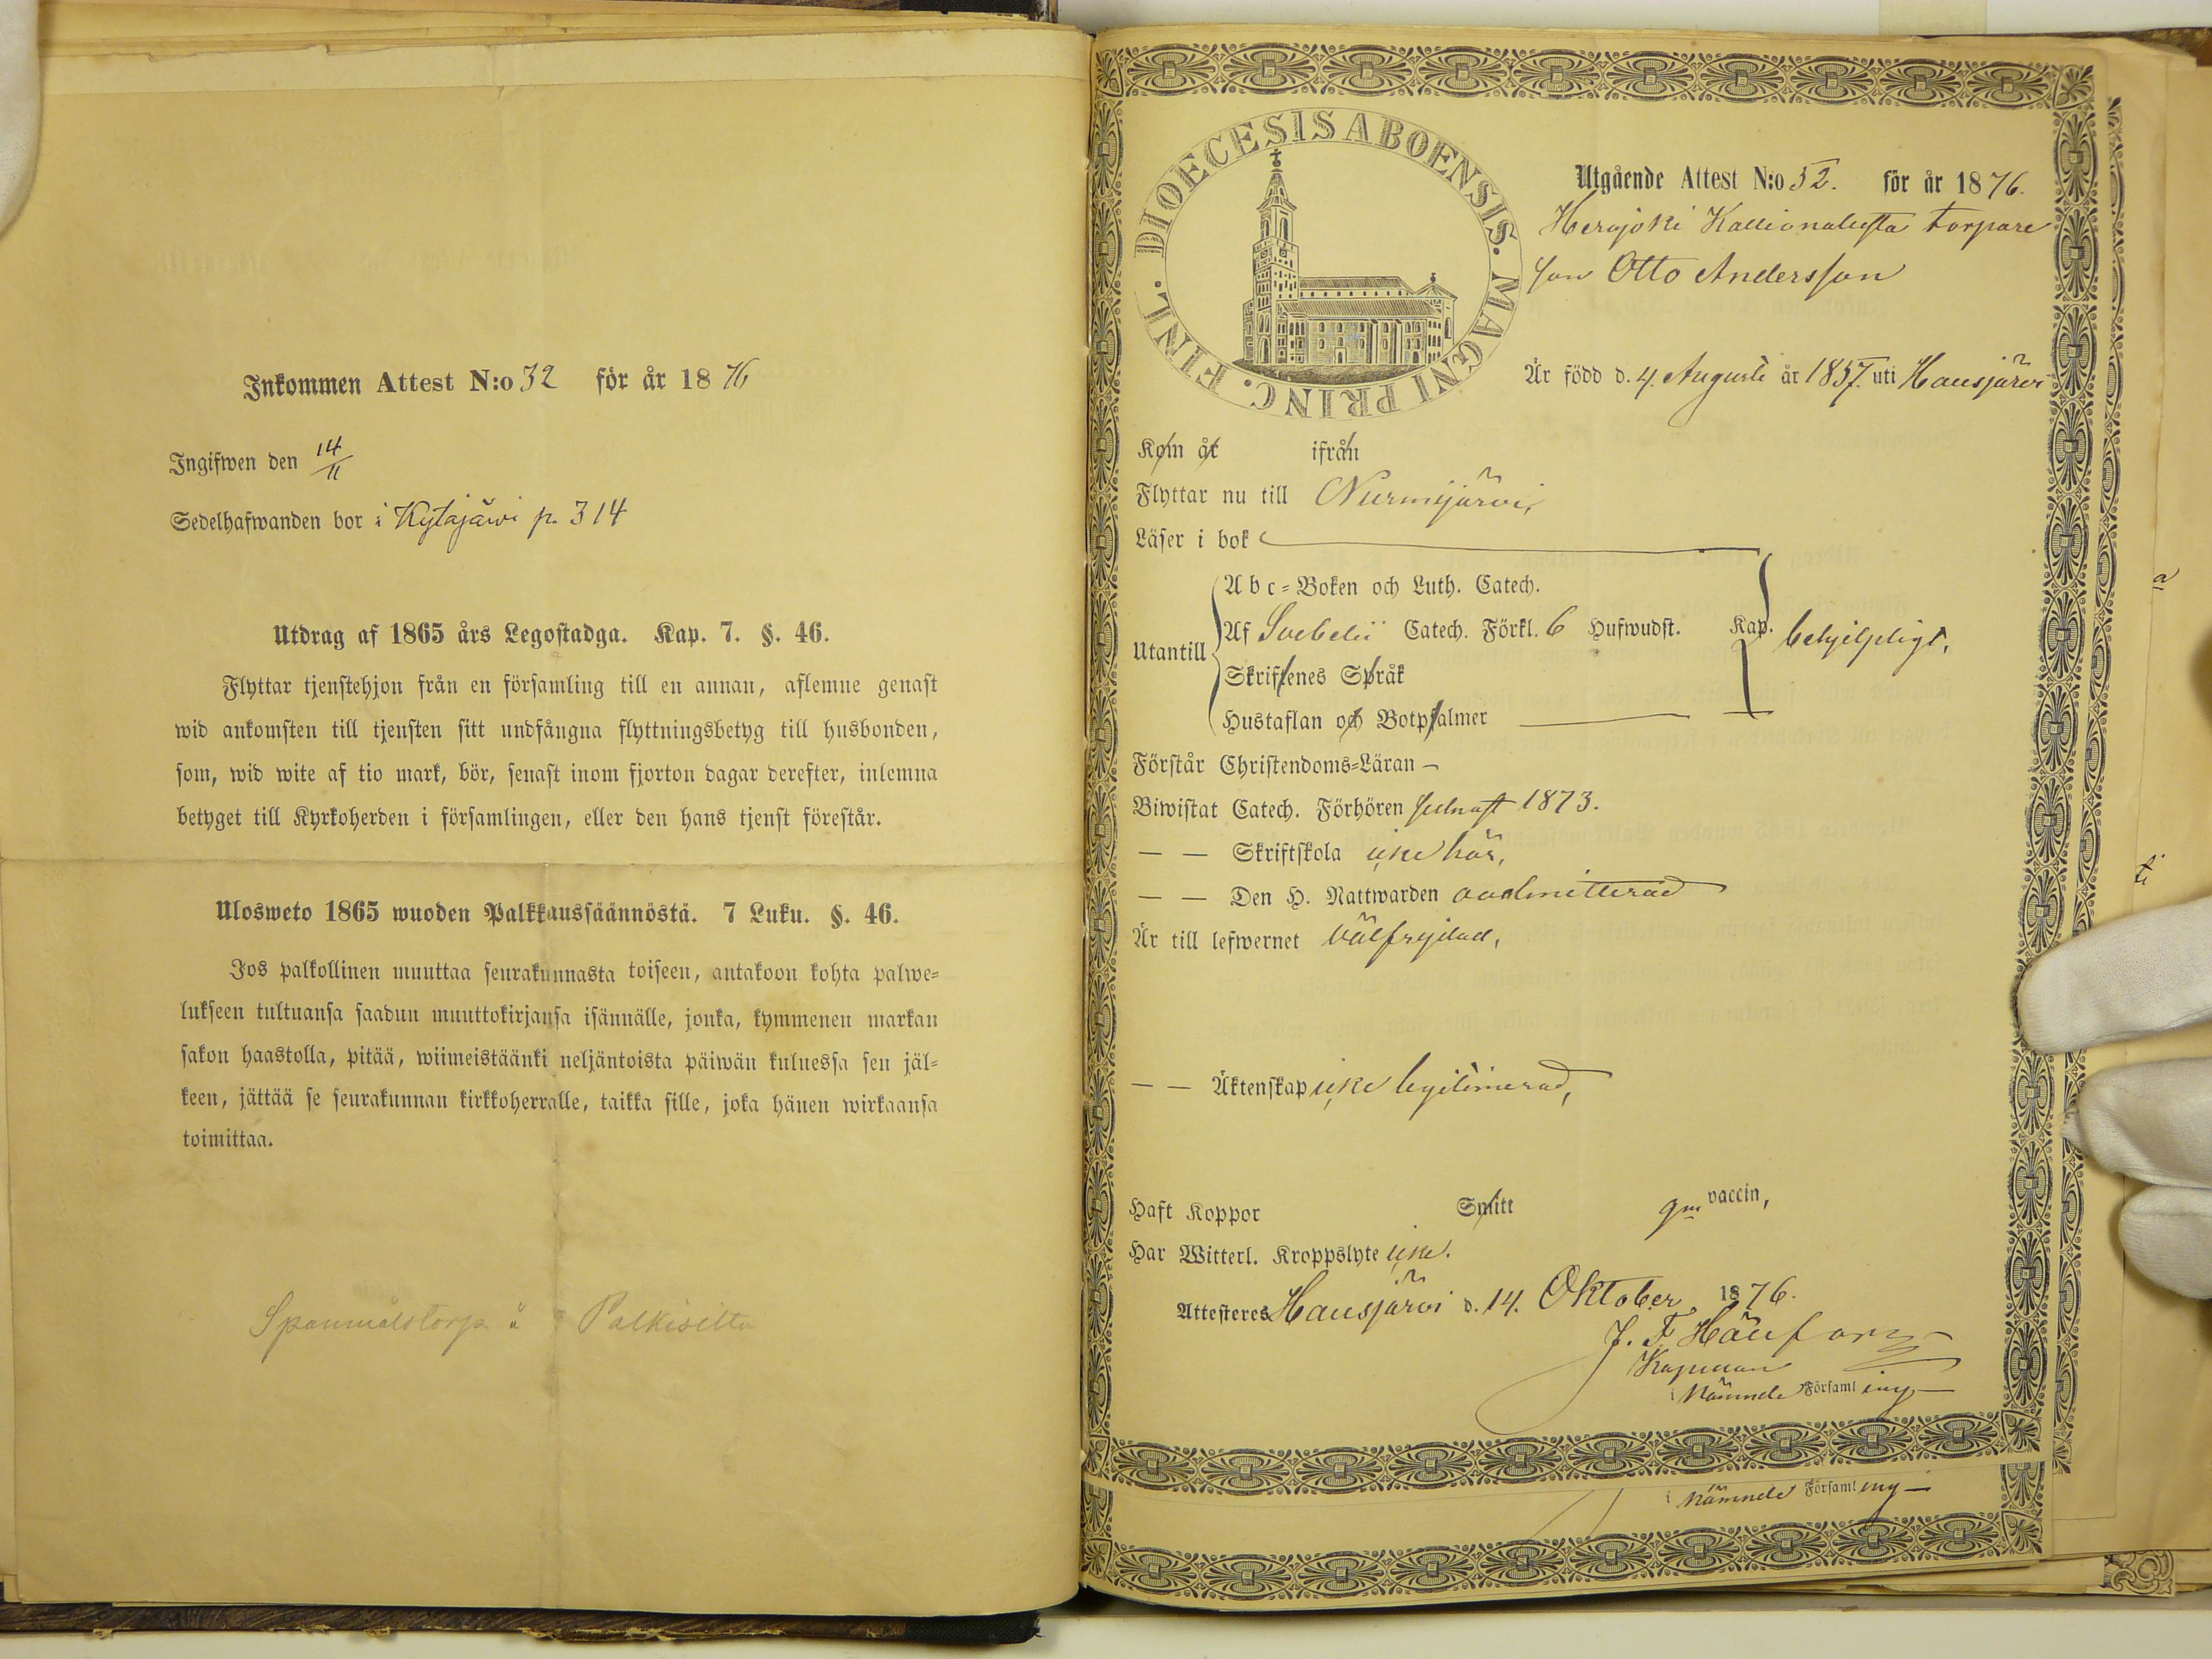 Inkommen Attest N:o 32 för år 1876
Ingifwen den 14/11
Sedelhafwanden bor i Kytäjärwi p. 314
Utdrag af 1865 års Legostadga. Kap. 7. §. 46.
Flyttar tjenstehjon från en församling till en annan, aflemne genast
wid ankomsten till tjensten sitt undfångna flyttningsbetyg till husbonden,
som, wid wite af tio mark, bör, senast inom fjorton dagar derefter, inlemna
betyget till Kyrkoherden i församlingen, eller den hans tjenst förestår.
Ulosweto 1865 wuoden Palkkaussäännöstä. 7 Luku. §. 46.
Jos palkollinen muuttaa seurakunnasta toiseen, antakoon kohta palwe=
lukseen tultuansa saadun muuttokirjansa isännälle, jonka, kymmenen markan
sakon haastolla, pitää, wiimeistäänki neljäntoista päiwän kuluessa sen jäl=
keen, jättää se seurakunnan kirkkoherralle, taikka sille, joka hänen wirkaansa
toimittaa.
Spanmålstorp å Palkisilta
FINL. DIOECESIS ABOENSIS. MAGNI PRINC.
Utgående Attest N:o 32. för år 1876.
Herajoki Kallionalusta torpare
son Otto Andersson
Är född d. 4 Augusti år 1857. uti Hausjärvi
Kom år ifrån
Flyttar nu till Nurmijärvi,
Läser i bok
Abc=Boken och Luth. Catech.
Utantill
Af Svebelii Catech. Förkl. 6 Hufwudst. Kap. behjelpligt.
Skriftenes Språk
Hustaflan och Botpsalmer
Förstår Christendoms=Läran —
Biwistat Catech. Förhören sednast 1873.
— — Skriftskola icke här,
— — Den H. Nattwarden oadmitterad
Är till lefwernet välfrejdad,
— — Äktenskap icke legitimerad,
Haft Koppor Smitt gm vaccin,
Har Witterl. Kroppslyte icke.
Attesteres Hausjärvi d. 14. Oktober 1876.
J. F.
Kapellan
i nämnde Församling —
i nämnde Församling —